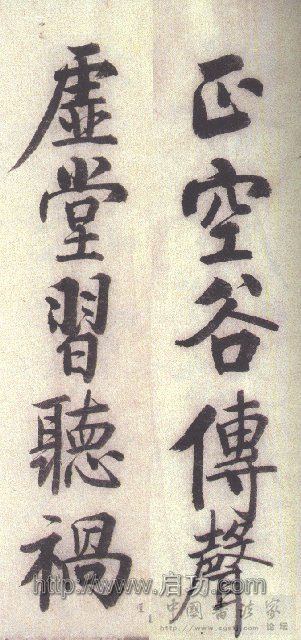 正空谷傳聲
虛堂習聽禍
http://www.启功.com
中國書法家
论坛